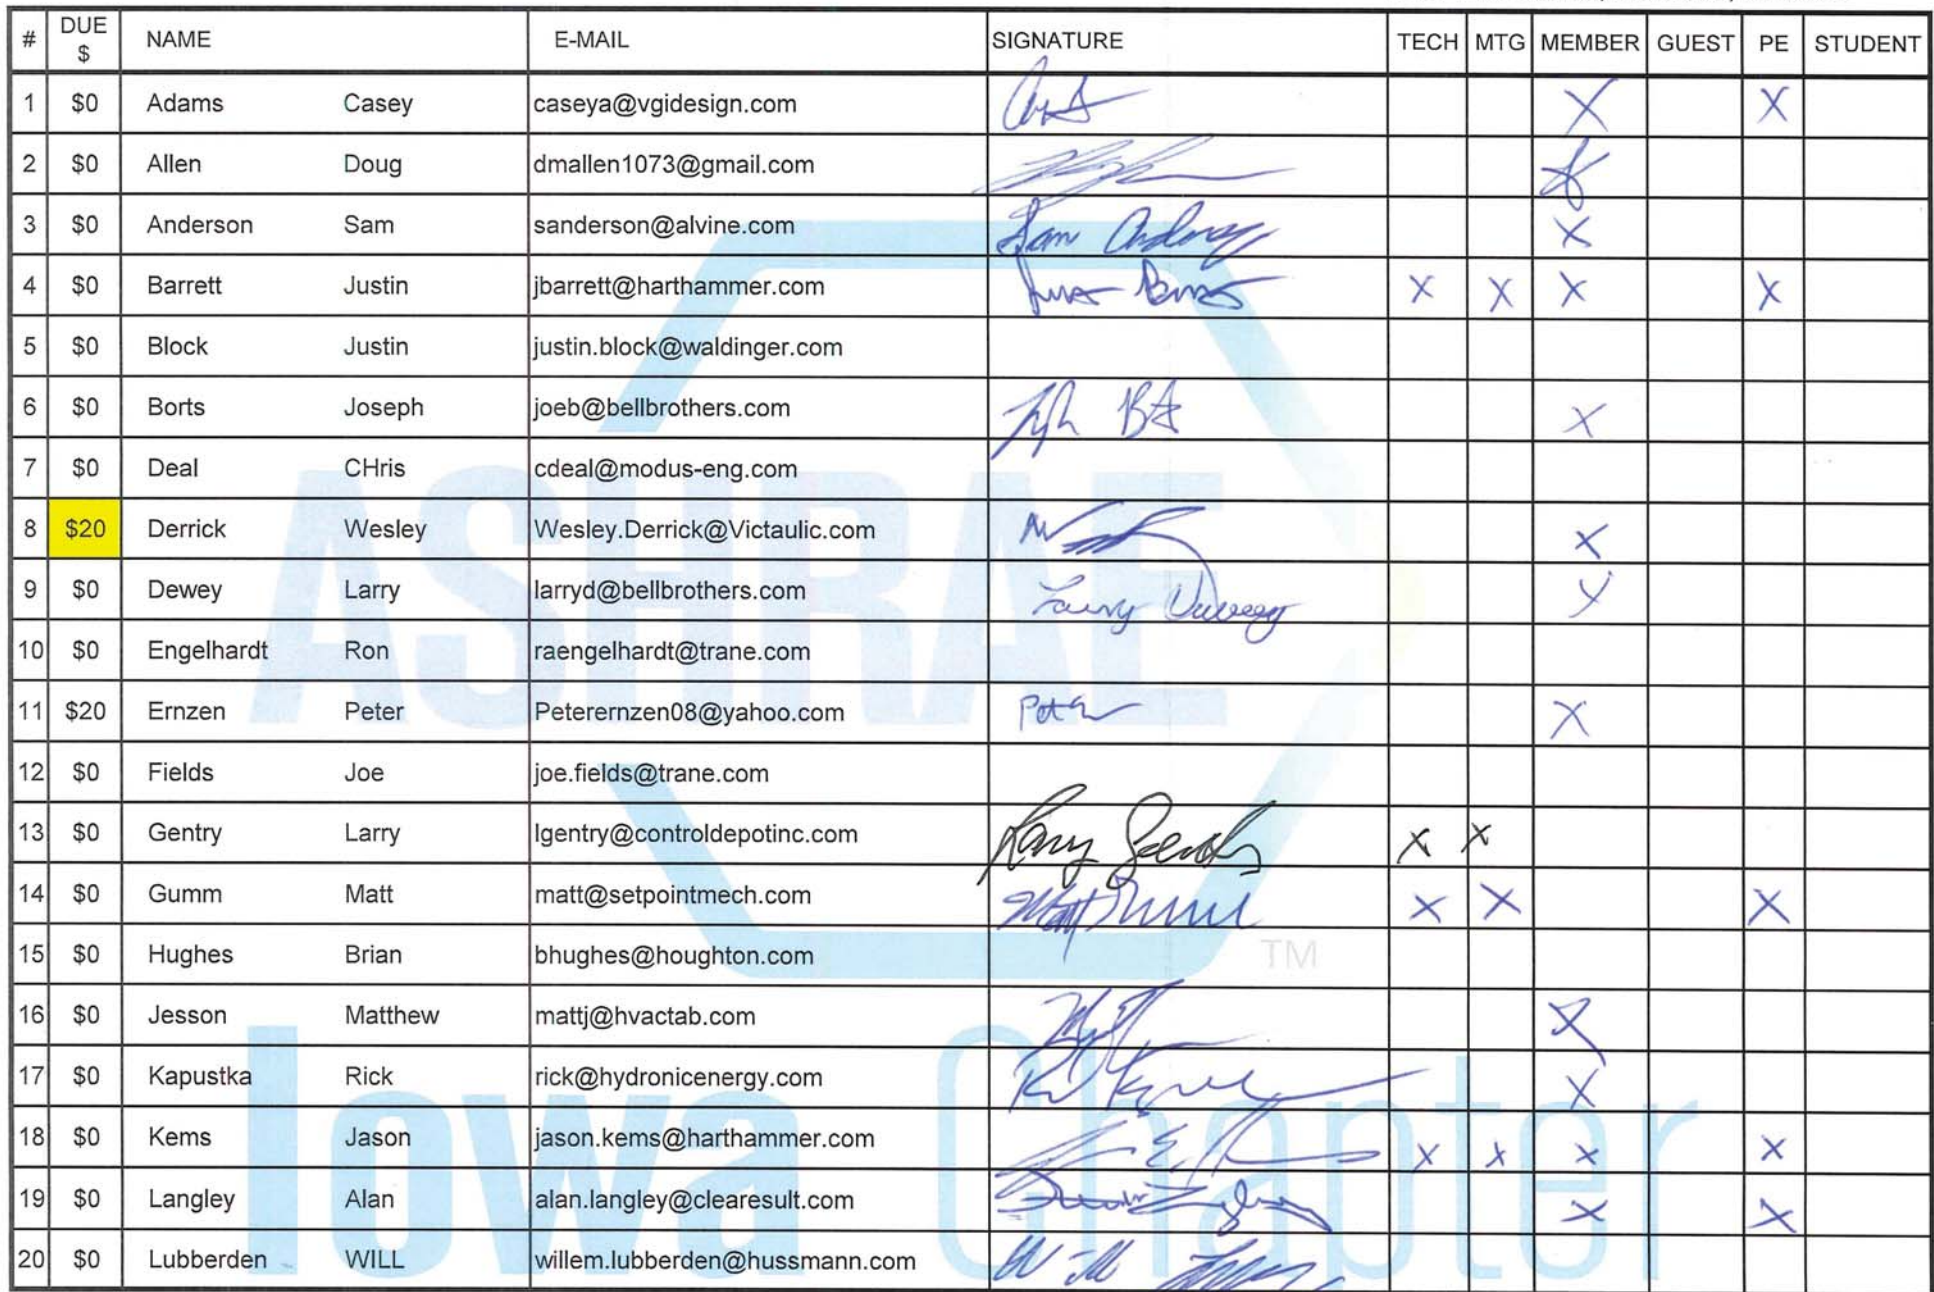 # DUE $ NAME E-MAIL SIGNATURE TECH MTG MEMBER GUEST PE STUDENT
1 $0 Adams Casey caseya@vgidesign.com X X
2 $0 Allen Doug dmallen1073@gmail.com X
3 $0 Anderson Sam sanderson@alvine.com Sam Anderson X
4 $0 Barrett Justin jbarrett@harthammer.com X X X X
5 $0 Block Justin justin.block@waldinger.com
6 $0 Borts Joseph joeb@bellbrothers.com X
7 $0 Deal CHris cdeal@modus-eng.com
8 $20 Derrick Wesley Wesley.Derrick@Victaulic.com X
9 $0 Dewey Larry larryd@bellbrothers.com Larry Dewey X
10 $0 Engelhardt Ron raengelhardt@trane.com
11 $20 Ernzen Peter Peterernzen08@yahoo.com X
12 $0 Fields Joe joe.fields@trane.com
13 $0 Gentry Larry lgentry@controldepotinc.com Larry Gentry X X
14 $0 Gumm Matt matt@setpointmech.com Matt Gumm X X X
15 $0 Hughes Brian bhughes@houghton.com
16 $0 Jesson Matthew mattj@hvactab.com X
17 $0 Kapustka Rick rick@hydronicenergy.com X
18 $0 Kems Jason jason.kems@harthammer.com X X X X
19 $0 Langley Alan alan.langley@clearesult.com X X
20 $0 Lubberden WILL willem.lubberden@hussmann.com Will
ASHRAE TM
Iowa Chapter